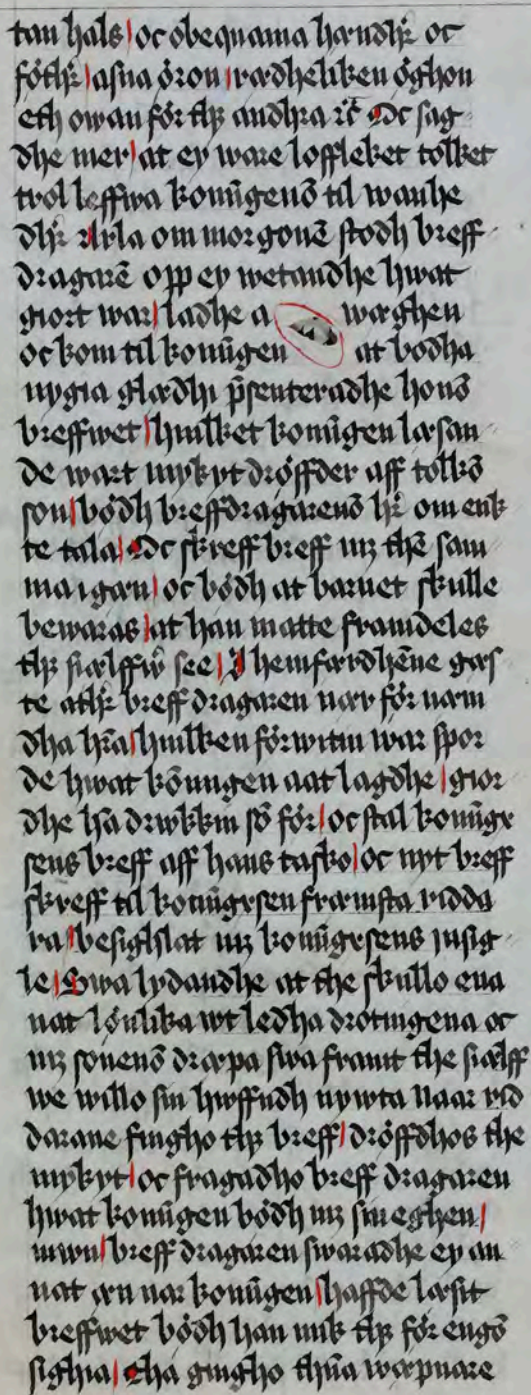 tan hals oc obequama hændh̄r oc
føth̄r asna øron rædheliken øghon
eth owan før thz andhra rc̄ Oc sag
dhe mer at ey ware loffleket tolket
trol leffwa konūgenō til wanhe
dh̄r Arla om morgonē stodh breff
dragarē opp ey wetandhe hwat
giort war ladhe a wæghen
oc kom til konūgen at bodha
nygia glædhi p̄senteradhe honō
breffwet huilket konūgen læsan
de wart mykyt drøffder aff tolkō
son bødh breffdragarenō h̄r om enk
te tala Oc skreff breff mz thē sam
ma igæn oc bødh at barnet skulle
bewaras at han matte framdeles
thz siælffw̄ see J hemfærdhēne gæs
te ath̄r breff dragaren nær før næm
dha hr̄a huilken førwitin war spor
de hwat kōnngen aat lagdhe gior
dhe hā drukkin sō før oc stal konūgx
sens breff aff hans tasko oc nyt breff
skreff til konūgxsen fræmsta ridda
ra besighlat mz konūgxsens insig
le Swa lydandhe at the skullo ena
nat lønlika wt ledha drotningena oc
mz sonenō dræpa swa framt the siælff
we willo sin hwffudh nywta Naar rid
darane fingho thz breff drøffdhos the
mykyt oc fragadho breff dragaren
hwat konūgen bødh mz sin eghen
mwn breff dragaren swaradhe ey an
nat æn nar konūgen haffde læsit
breffwet bødh han mik thz før engō
sighia Tha gingho thn̄a wæpnare